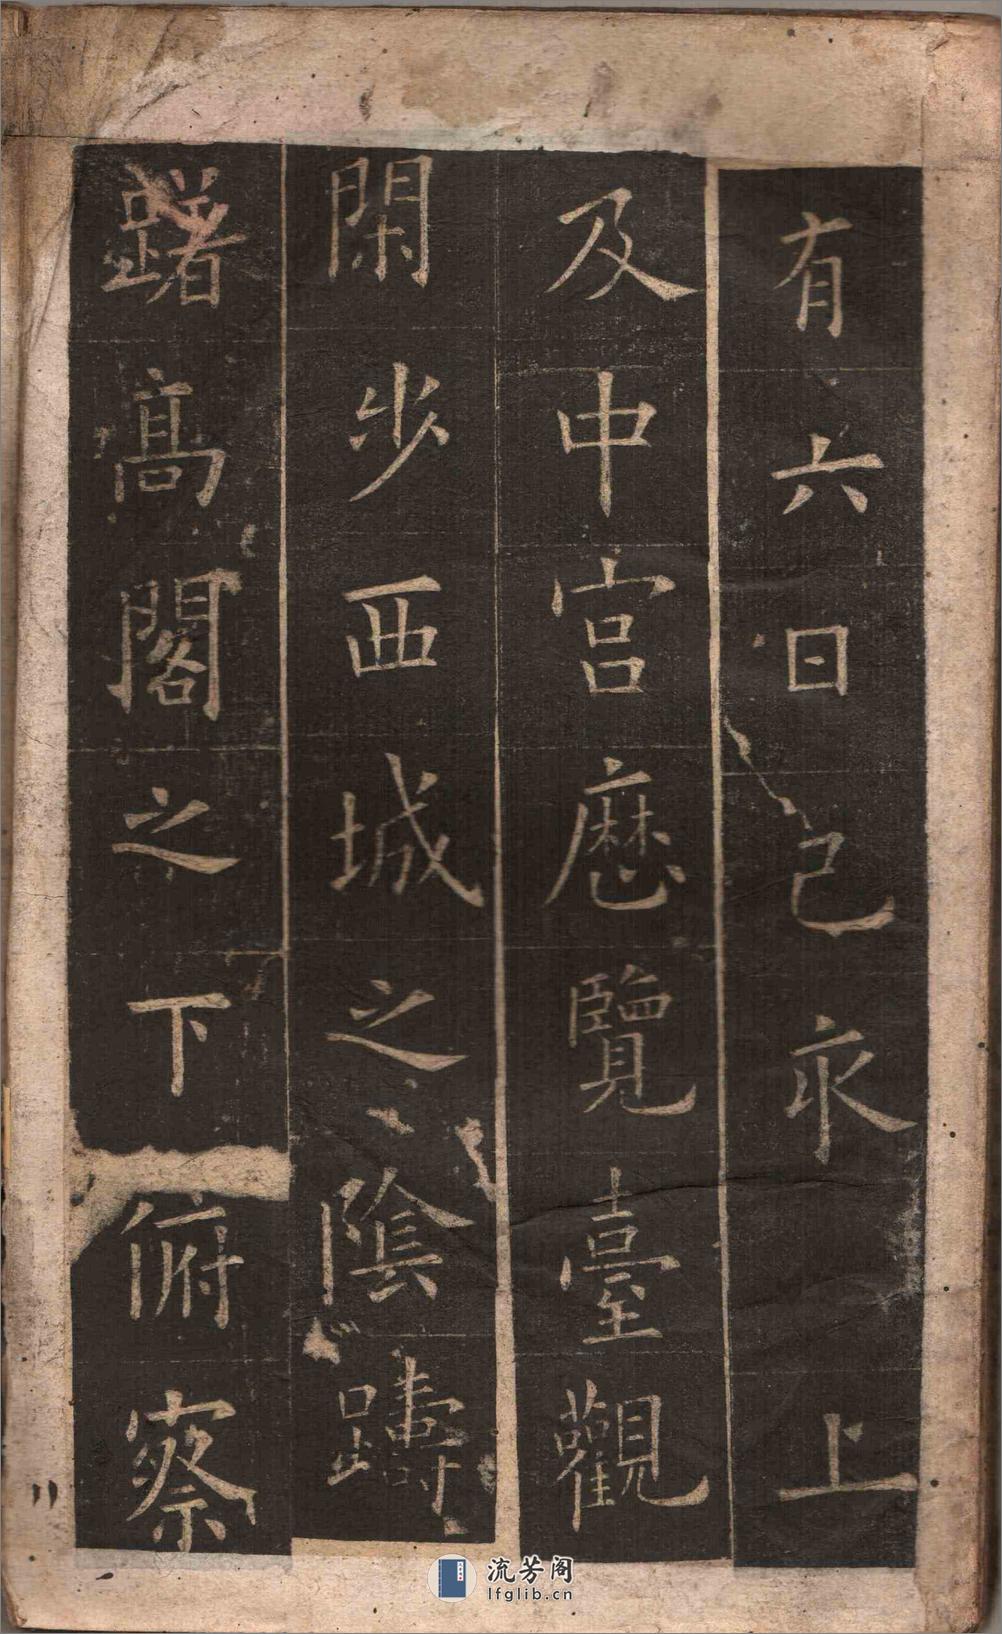 有六日己亥上
及中宮歷覽臺觀
閑步西城之陰躊
躇高閣之下俯察
流芳阁
lfglib.cn